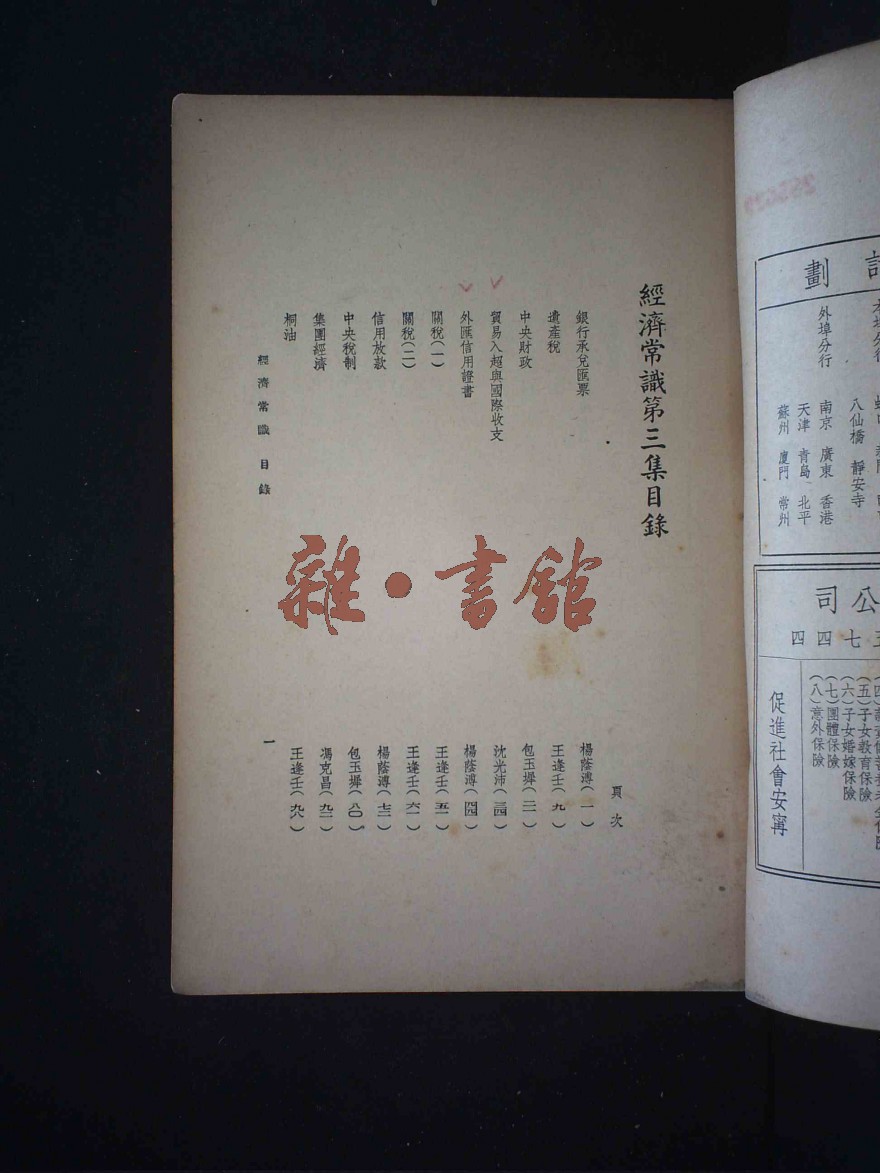 劃
外埠分行
八仙橋 靜安寺
南京 廣東 香港
天津 青島 北平
蘇州 廈門 常州
公司
七四四
(五)子女教育保險
(六)子女婚嫁保險
(七)團體保險
(八)意外保險
促進社會安寧
經濟常識第三集目錄
頁次
銀行承兌匯票 楊蔭溥(一)
遺產稅 王逢壬(九)
中央財政 包玉墀(二一)
貿易入超與國際收支 沈光沛(三四)
外匯信用證書 楊蔭溥(四四)
關稅(一) 王逢壬(五一)
關稅(二) 王逢壬(六一)
信用放款 楊蔭溥(七三)
中央稅制 包玉墀(八〇)
集團經濟 馮克昌(九二)
桐油 王逢壬(九八)
經濟常識 目錄
一
雜·書館